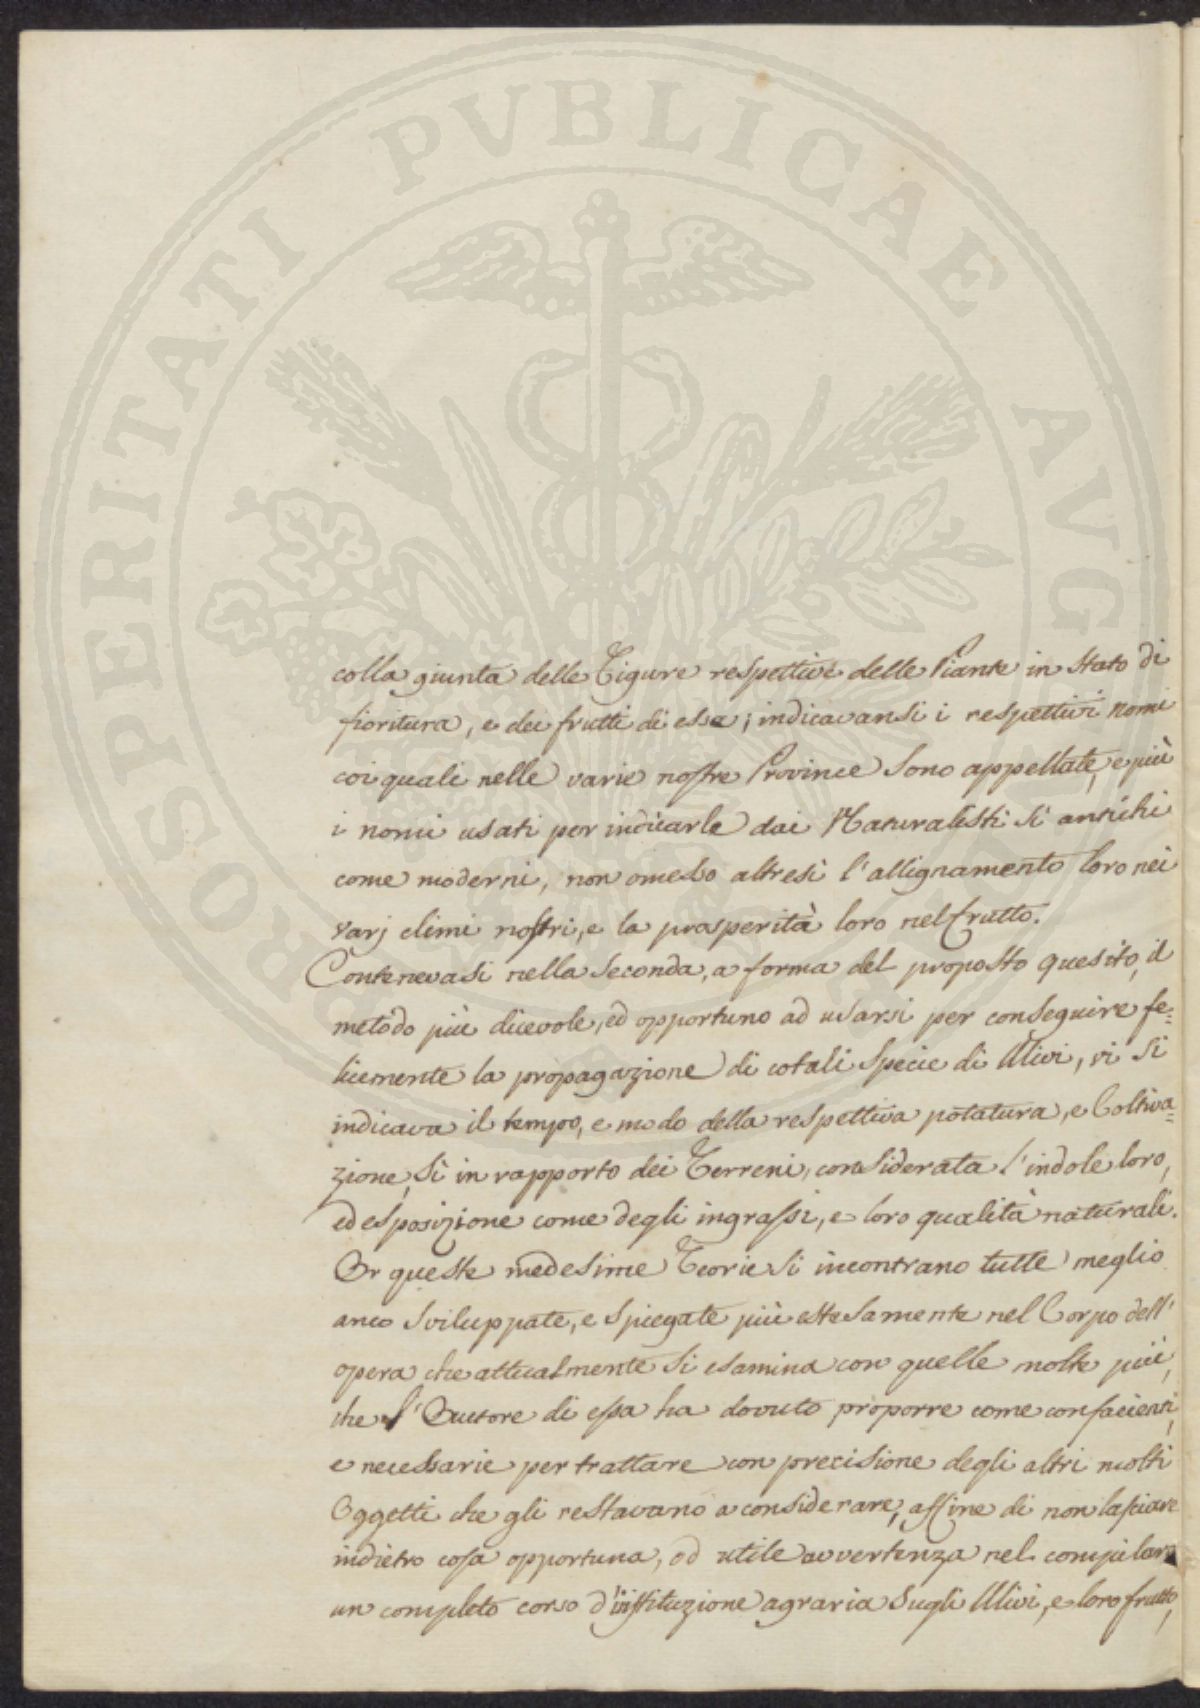 PROSPERITATI PVBLICAE AVGENDAE
colla giunta delle Figure respettive delle Piante in stato di
fioritura, e dei frutti di essa; indicavansi i respettivi nomi
coi quali nelle varie nostre Province sono appellate, e più
i nomi usati per indicarle dai Naturalisti sì antichi
come moderni, non omesso altresì l'allignamento loro nei
varj climi nostri, e la prosperità loro nel frutto.
Contenevasi nella seconda, a forma del proposto quesito, il
metodo più dicevole, ed opportuno ad usarsi per conseguire fe=
licemente la propagazione di cotali specie di Ulivi, vi si
indicava il tempo, e modo della respettiva potatura, e Coltiva=
zione, sì in rapporto dei Terreni, considerata l'indole loro,
ed esposizione come degli ingrassi, e loro qualità naturali.
Or queste medesime Teorie si incontrano tutte meglio
anco sviluppate, e spiegate più estesamente nel Corpo dell'
opera che attualmente si esamina con quelle molte più,
che l'Autore di essa ha dovuto proporre come confacienti,
e necessarie per trattare con precisione degli altri molti
Oggetti che gli restavano a considerare, affine di non lasciare
indietro cosa opportuna, od utile avvertenza nel compilare
un completo corso d'instituzione agraria sugli Ulivi, e loro frutto,